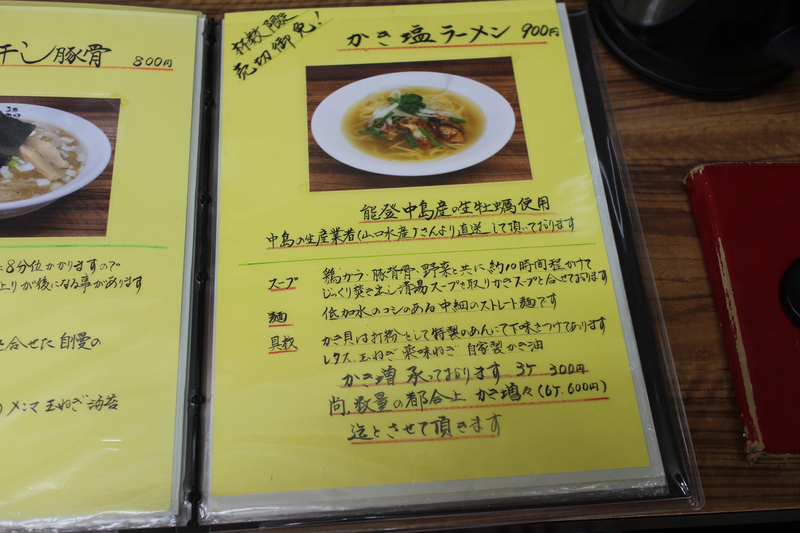 干し豚骨 800円
8分位かかりますので
上りが後になる事があります
を合せた自慢の
メンマ 玉ねぎ 海苔
杯数限定
売切御免!
かき塩ラーメン 900円
能登中島産の生牡蠣使用
中島の生産業者(山口水産)さんより直送して頂いております
スープ 鶏ガラ・豚背骨・野菜と共に約10時間程かけて
じっくり焚き出し清湯スープを取りかきスープと合せております
麺 低加水のコシのある中細のストレート麺です
具材 かき貝は打粉をして特製のあんにて下味をつけてあります
レタス、玉ねぎ 薬味ねぎ 自家製かき油
かき増承っております 3ケ 300円
尚、数量の都合上 かき増々(6ケ600円)
迄とさせて頂きます